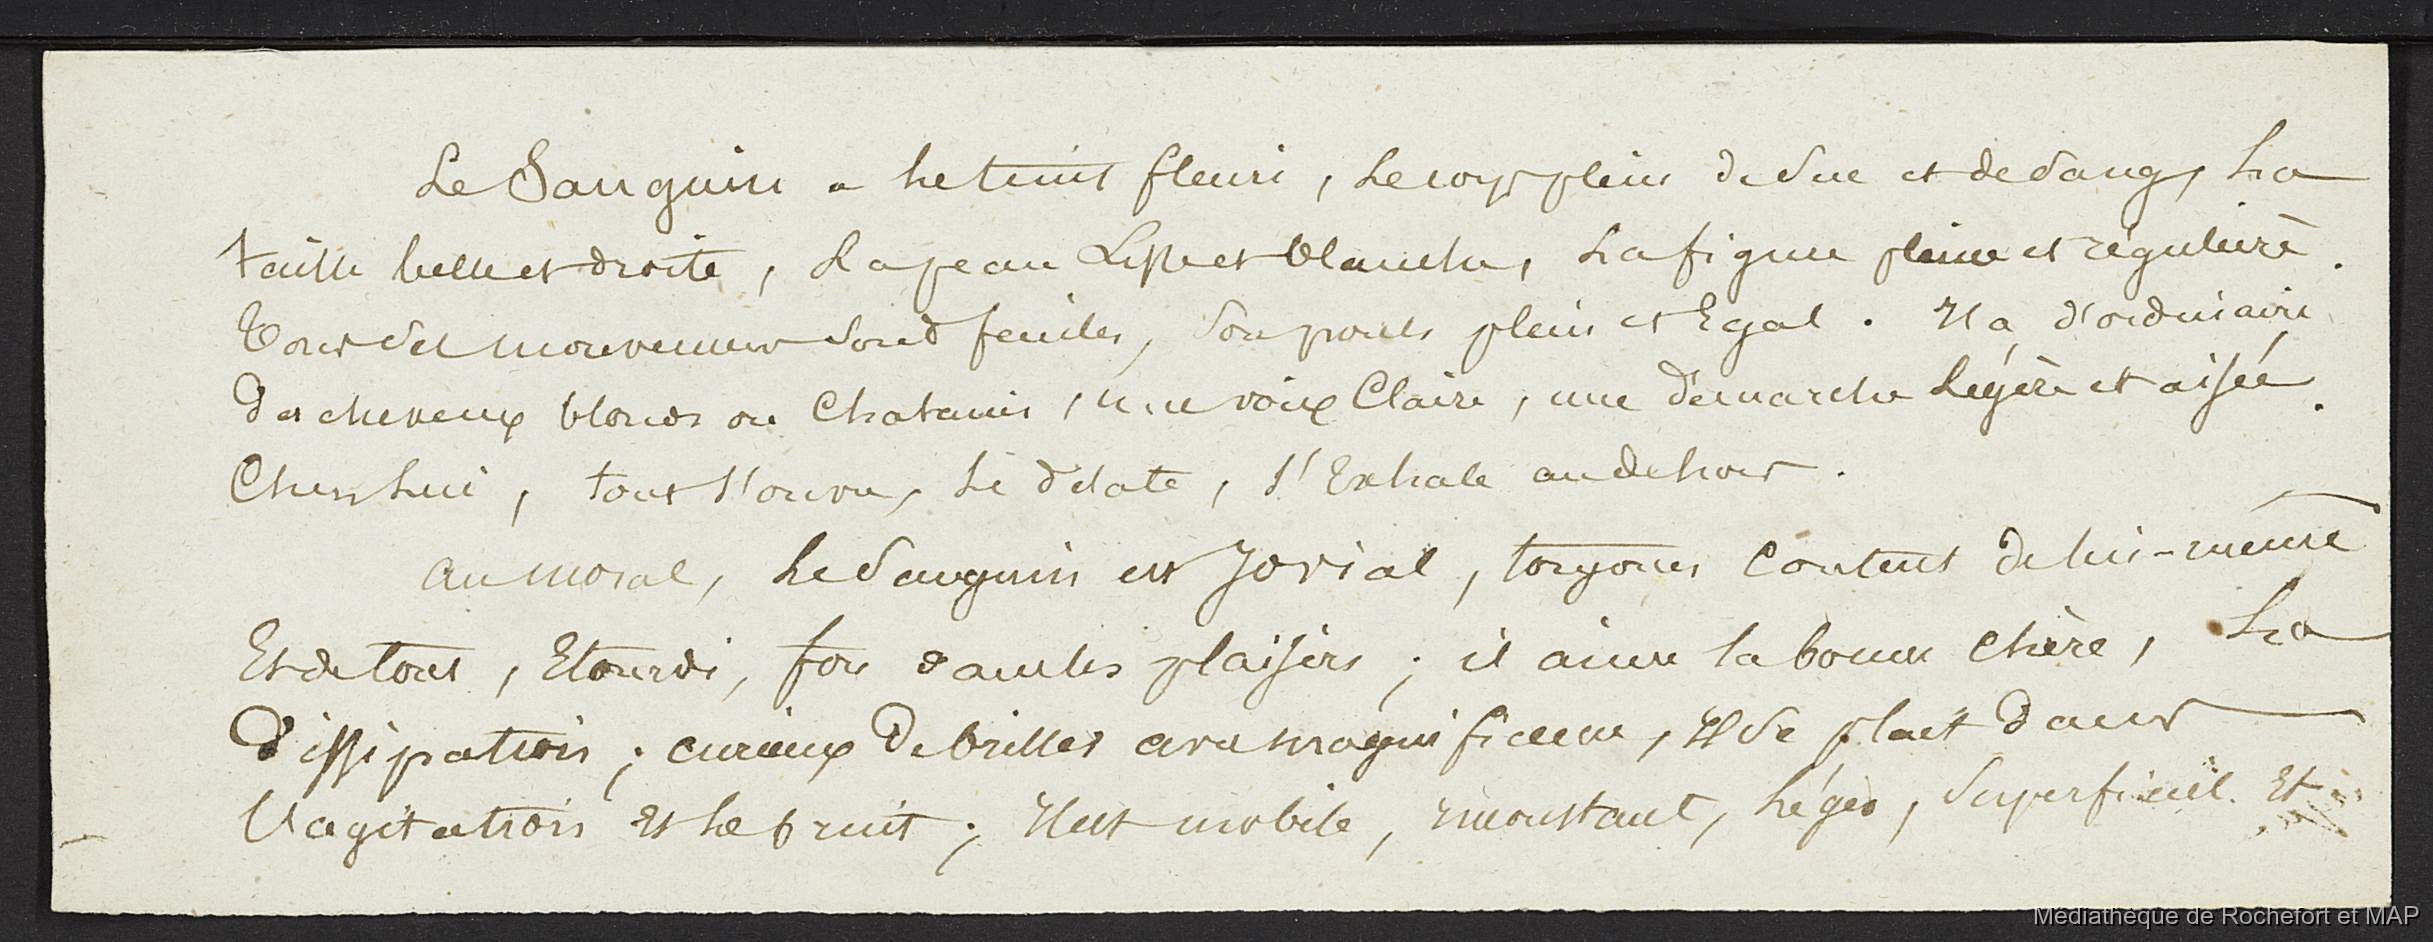 Le Sanguin a le teint fleuri, le corps plein de suc et de sang, La
taille belle et droite, La peau Lisse et blanche, La figure pleine et régulière.
Tous ses mouvemens sont faciles, son pouls plein et Egal. Il a d'ordinaire
Des cheveux blonds ou Chatains, une voix Claire, une démarche Légère et aisée.
Chez Lui, tout s'ouvre, se dilate, s'Exhale au dehors.
au moral, Le Sanguin est Jovial, toujours Content de lui-même
Et de tout, Etourdi, fou dans les plaisirs; il aime la bonne Chère, La
Dissipation; curieux De briller avec magnificence, Il se plait dans
l'agitation Et Le bruit; Il est mobile, inconstant, Léger, Superficiel. Et
Médiathèque de Rochefort et MAP